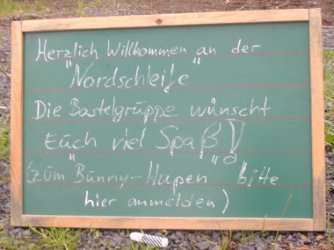 Herzlich Willkommen an der
"Nordschleife"
Die Bastelgruppe wünscht
Euch viel Spaß!
(zum "Bunny-Hupen" bitte
hier anmelden)